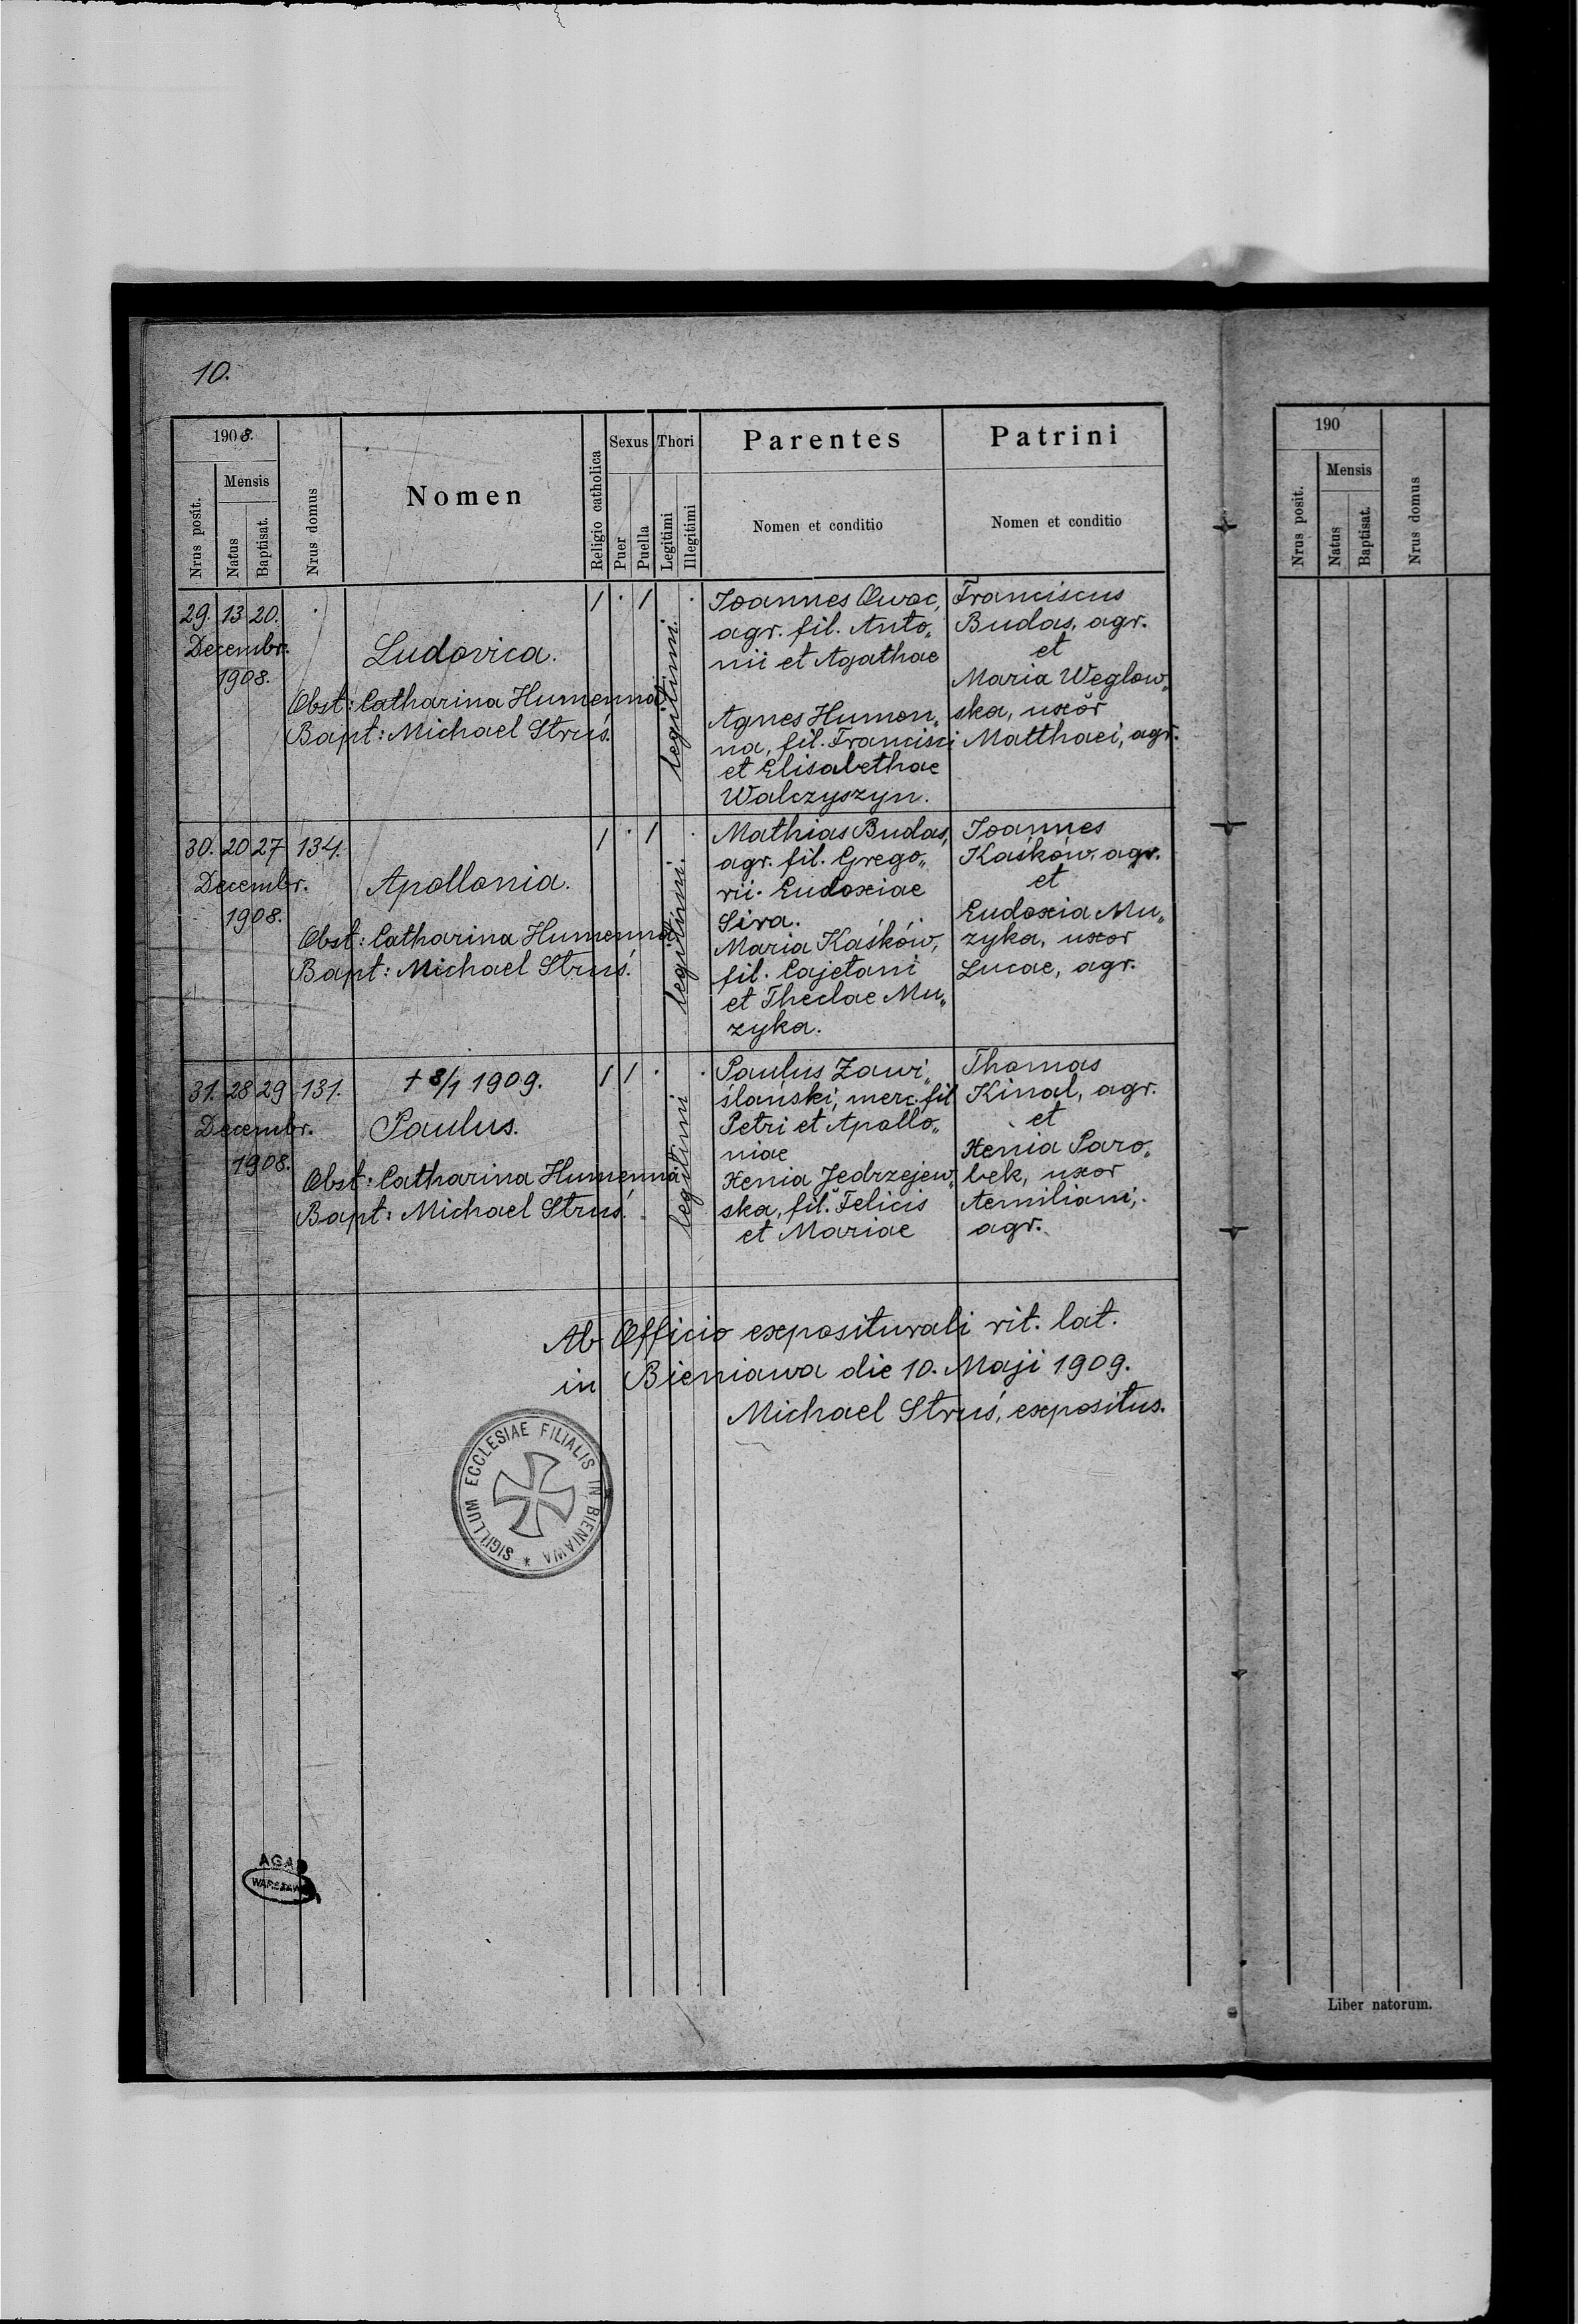 10.
1908.
Nrus posit.
Mensis
Natus
Baptisat.
Nrus domus
Nomen
Religio catholica
Sexus
Puer
Puella
Thori
Legitimi
Illegitimi
Parentes
Nomen et conditio
Patrini
Nomen et conditio
29. 13 20.
Decembr.
1908.
Ludovica.
Obst: Catharina Humenna
Bapt: Michael Struś.
1 . 1 .
legitimi.
Joannes Owoc,
agr. fil. Anto„
nii et Agathae
Agnes Humen„
na, fil. Francisci
et Elisabethae
Walczyszyn.
Franciscus
Budas, agr.
et
Maria Weglow„
ska, uxor
Matthaei, agr.
30. 20 27 134.
Decembr.
1908.
Apollonia.
Obst: Catharina Humenna
Bapt: Michael Struś.
1 . 1 .
legitimi.
Mathias Budas,
agr. fil. Grego„
rii. Eudoxiae
Siva.
Maria Kaśków,
fil. Cajetani
et Theclae Mu„
zyka.
Joannes
Kaśków, agr.
et
Eudoxia Mu„
zyka, uxor
Lucae, agr.
31. 28 29 131.
Decembr.
1908.
† 8/1 1909.
Paulus.
Obst: Catharina Humenna
Bapt: Michael Struś.
1 1 . .
legitimi
Paulus Zawi„
ślański, merc. fil
Petri et Apollo„
niae
Xenia Jedrzejew„
ska, fil. Felicis
et Mariae
Thomas
Kinal, agr.
et
Xenia Paro„
bek, uxor
Aemiliani,
agr.
Ab Officio expositurali rit. lat.
in Bieniawa die 10. Maji 1909.
Michael Struś, expositus.
SIGILLUM ECCLESIAE FILIALIS IN BIENIAWA *
AGAD
WARSZAWA
190
Nrus posit.
Mensis
Natus
Baptisat.
Nrus domus
Liber natorum.